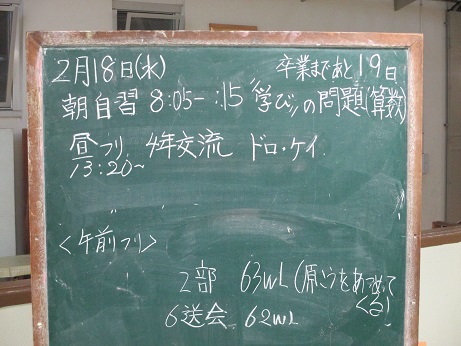 2月18日(水) 卒業まであと19日
朝自習 8:05-:15 "学び"の問題(算数)
昼フリ 4年交流 ドロ・ケイ
13:20~
〃 〃
<午前フリ>
2部 63WL(原こうをあつめてくる)
6送会 62WL